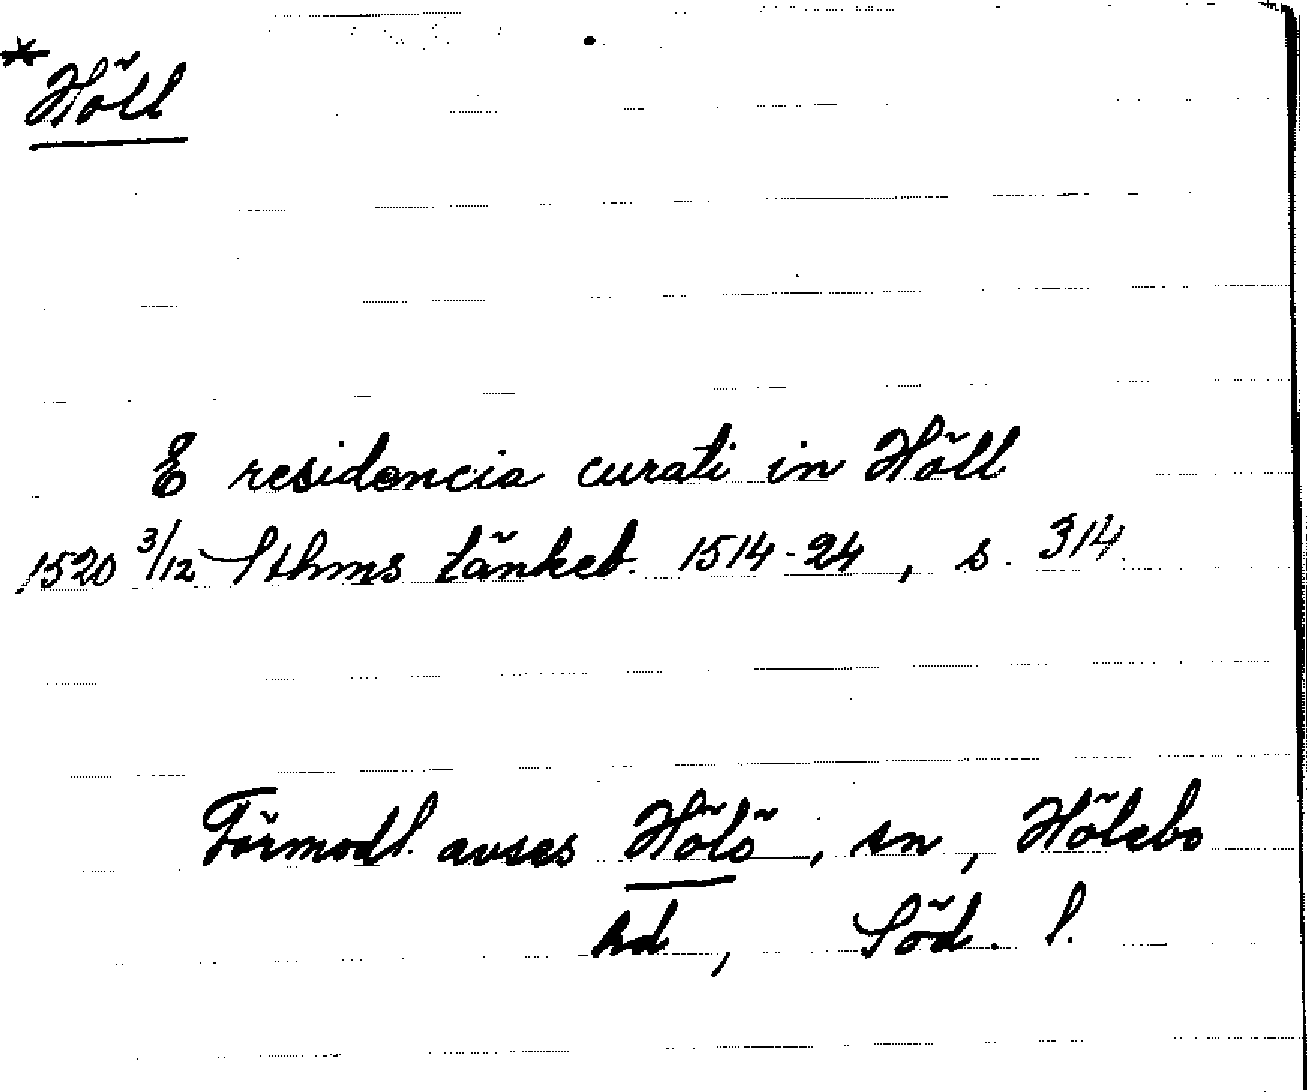 * Höll
E residencia curati in Höll
1520 3/12 Sthms tänkeb. 1514-24, s. 314.
Förmodl. avses Hölö, sn, Hölebo
hd, Söd. l.